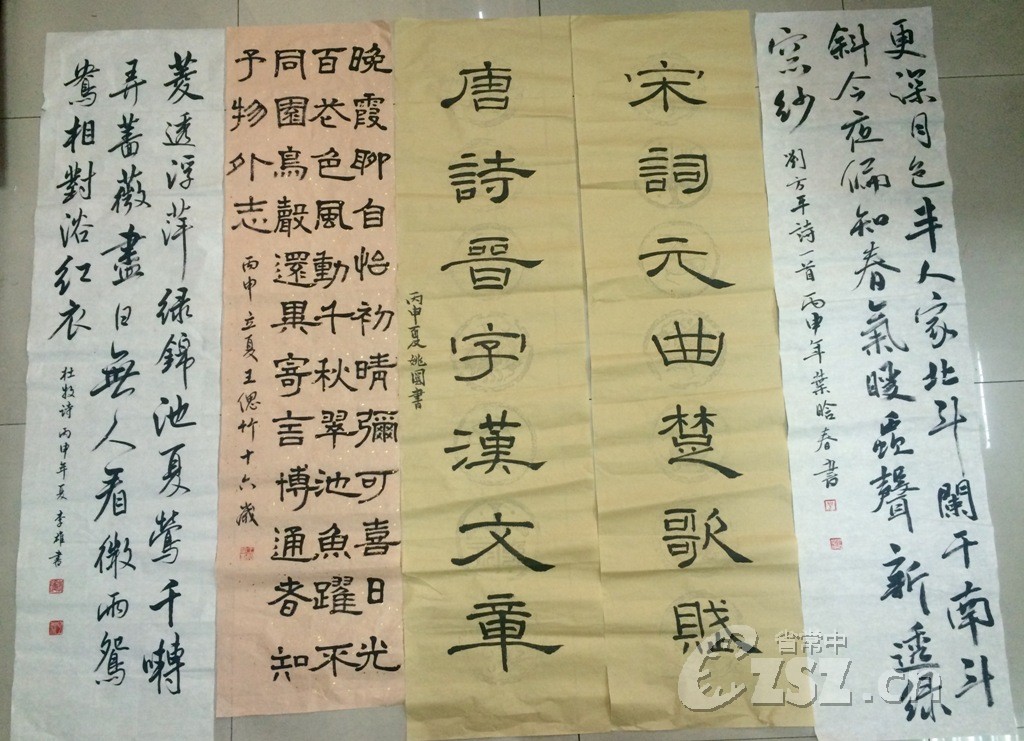 更深月色半人家北斗闌干南斗
斜今夜偏知春氣暖虫聲新透綠
窓紗
劉方平詩一首丙申年葉晗春書
宋詞元曲楚歌賦
唐詩晉字漢文章
丙申夏姚國書
晚霞聊自怡初晴彌可喜日光
百花色風動千秋翠池魚躍不
同園鳥聲還異寄言博通者知
予物外志
丙申立夏王偲竹十六歲
菱透浮萍绿錦池夏鶯千囀
弄薔薇盡日無人看微雨鴛
鴦相對浴红衣
杜牧诗丙申年夏李雄書
省常中
CZSZ.cn